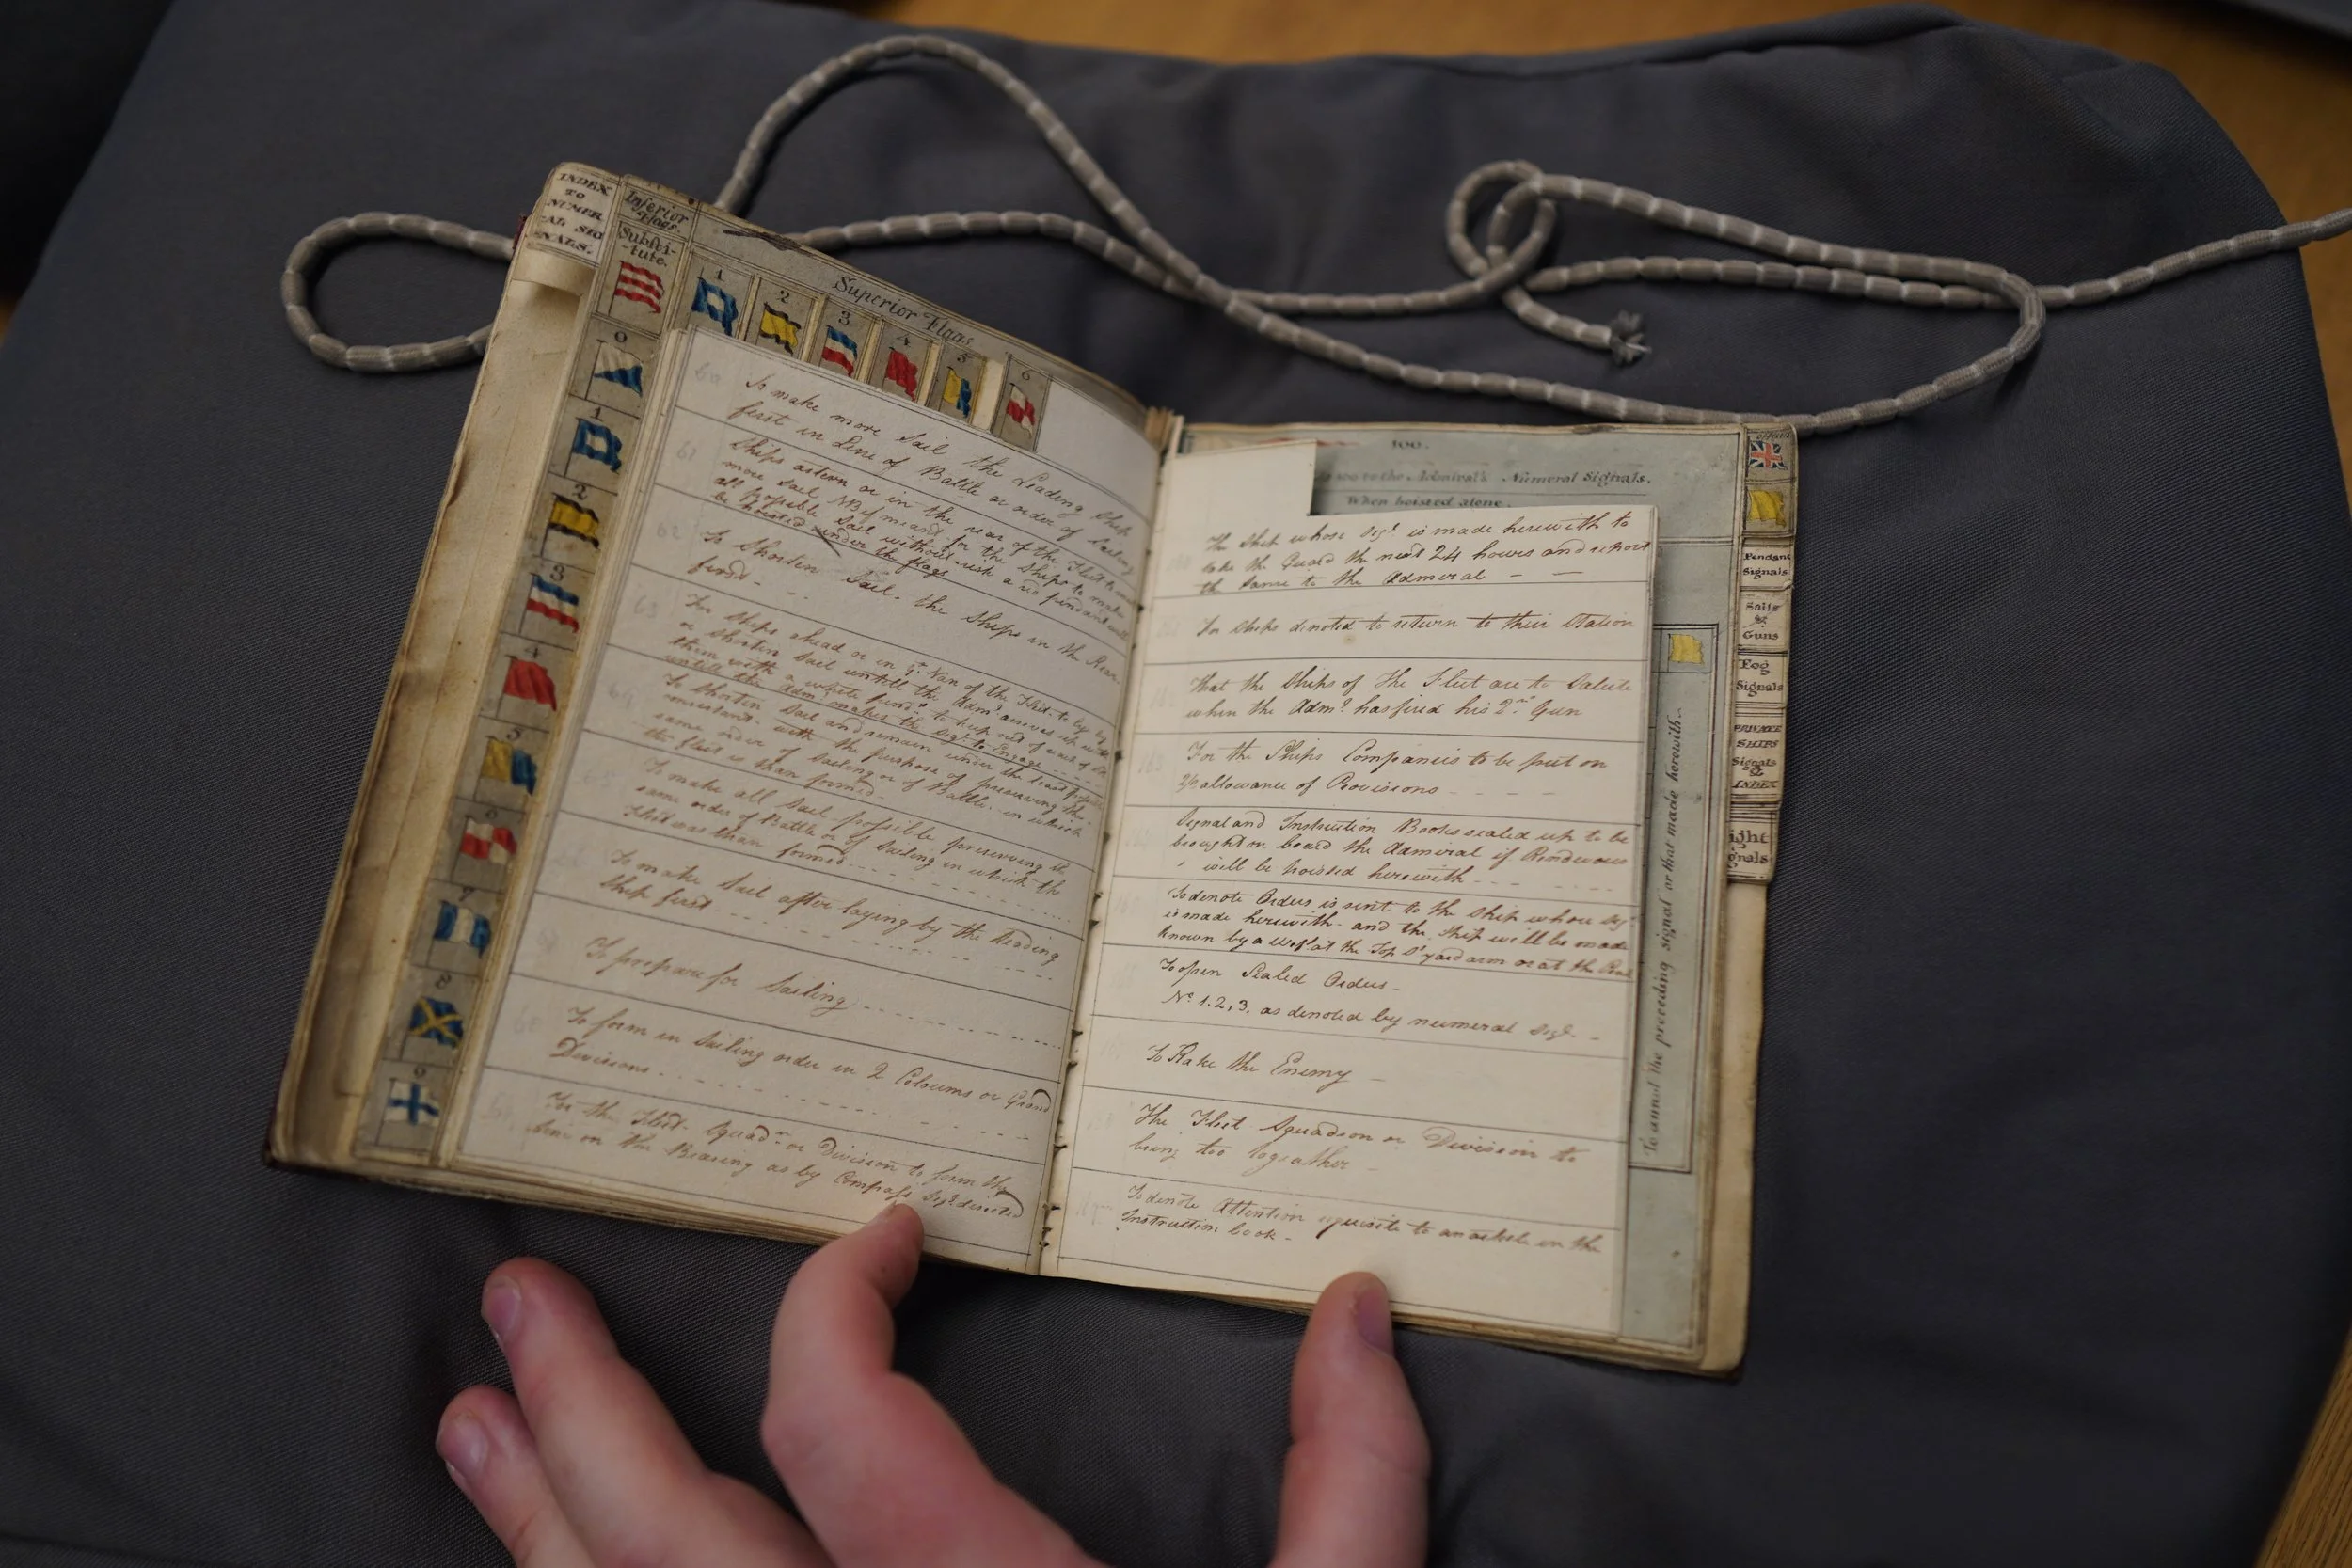 INDEX
TO
NUMER
-AL SIG
-NALS.
Inferior
Flags.
Substi-
-tute.
0
1
2
3
4
5
6
7
8
9
Superior Flags
1
2
3
4
5
6
60
To make more Sail the Leading Ship
first in Line of Battle or order of Sailing
61
Ships astern or in the rear of the Fleet to make
more Sail NB if meant for the Ships to make
all possible Sail without a red pendant will
be hoisted under the flags
62
To Shorten Sail. the Ships in the Rear
first -
63
For Ships ahead or in ye Van of the Fleet to lay by
or Shorten Sail untill the Adml arrives up with
them with a white pendt to keep out of
untill the Adml makes the Sigl to Engage
64
To Shorten Sail and remain under the
with the purpose of preserving the
same order of Sailing or of Battle in which
the fleet is than formed
To make all Sail possible preserving the
same order of Battle or of Sailing in which the
Fleet was than formed
To make Sail after laying by the leading
Ship first
To prepare for Sailing
To form in Sailing order in 2 Coloums or Grand
Divisions
For the Fleet Squadn or division to form the
line on the Bearing as by Compass Sigl directed
100.
to the Admiral's Numeral Signals.
When hoisted alone.
The Ship whose Sigl is made herewith to
take the Guard the next 24 hours and report
the same to the Admiral - -
For Ships denoted to return to their Station
That the Ships of the Fleet are to Salute
when the Adml has fired his 2nd Gun
For the Ships Companies to be put on
allowance of Provisions
Signal and Instruction Books sealed up to be
brought on board the Admiral if Rendevous
will be hoisted herewith
To denote Orders is sent to the Ship whose Sigl
is made herewith. and the Ship will be made
known by a weft at the Top Sl yard arm or at the Peak
To open Sealed Orders -
No 1. 2, 3, as denoted by numeral Sigl. -
To Rake the Enemy -
The Fleet Squadron or Division to
being too togeather -
To denote Attention requisite to an article in the
Instruction book -
To annul the preceeding signal or that made herewith.
Pendant
Signals
Sails
&
Guns
Fog
Signals
PRIVATE
SHIPS
Signals
&
INDEX
ight
gnals